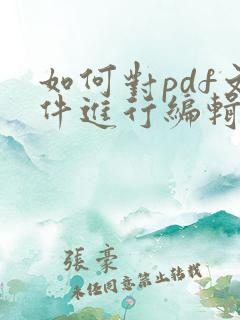 如何對pdf文
件進行編輯
張豪
未经同意禁止转载